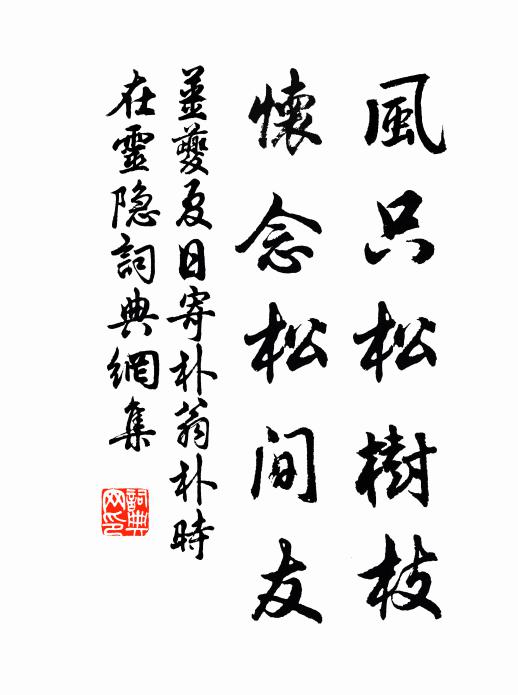 風只松樹枝
懷念松間友
姜夔夏日寄朴翁朴時
在靈隐詞典網集
詞典网印